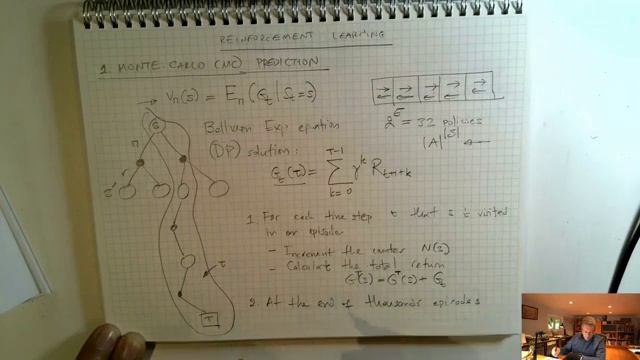 REINFORCEMENT LEARNING
1. MONTE-CARLO (MC) PREDICTION
→ V_π(s) = E_π(G_t | S_t = s)
2^5 = 32 policies
|A|^|S| ←
Bellman Exp equation
(DP) solution:
G_t(τ) = Σ_{k=0}^{T-1} γ^k R_{t+1+k}
S
π
r
s'
τ
T
1. For each time step t that s is visited
in an episode
- Increment the counter N(s)
- Calculate the total return
G^T(s) = G^T(s) + G_t
2. At the end of thousands episodes